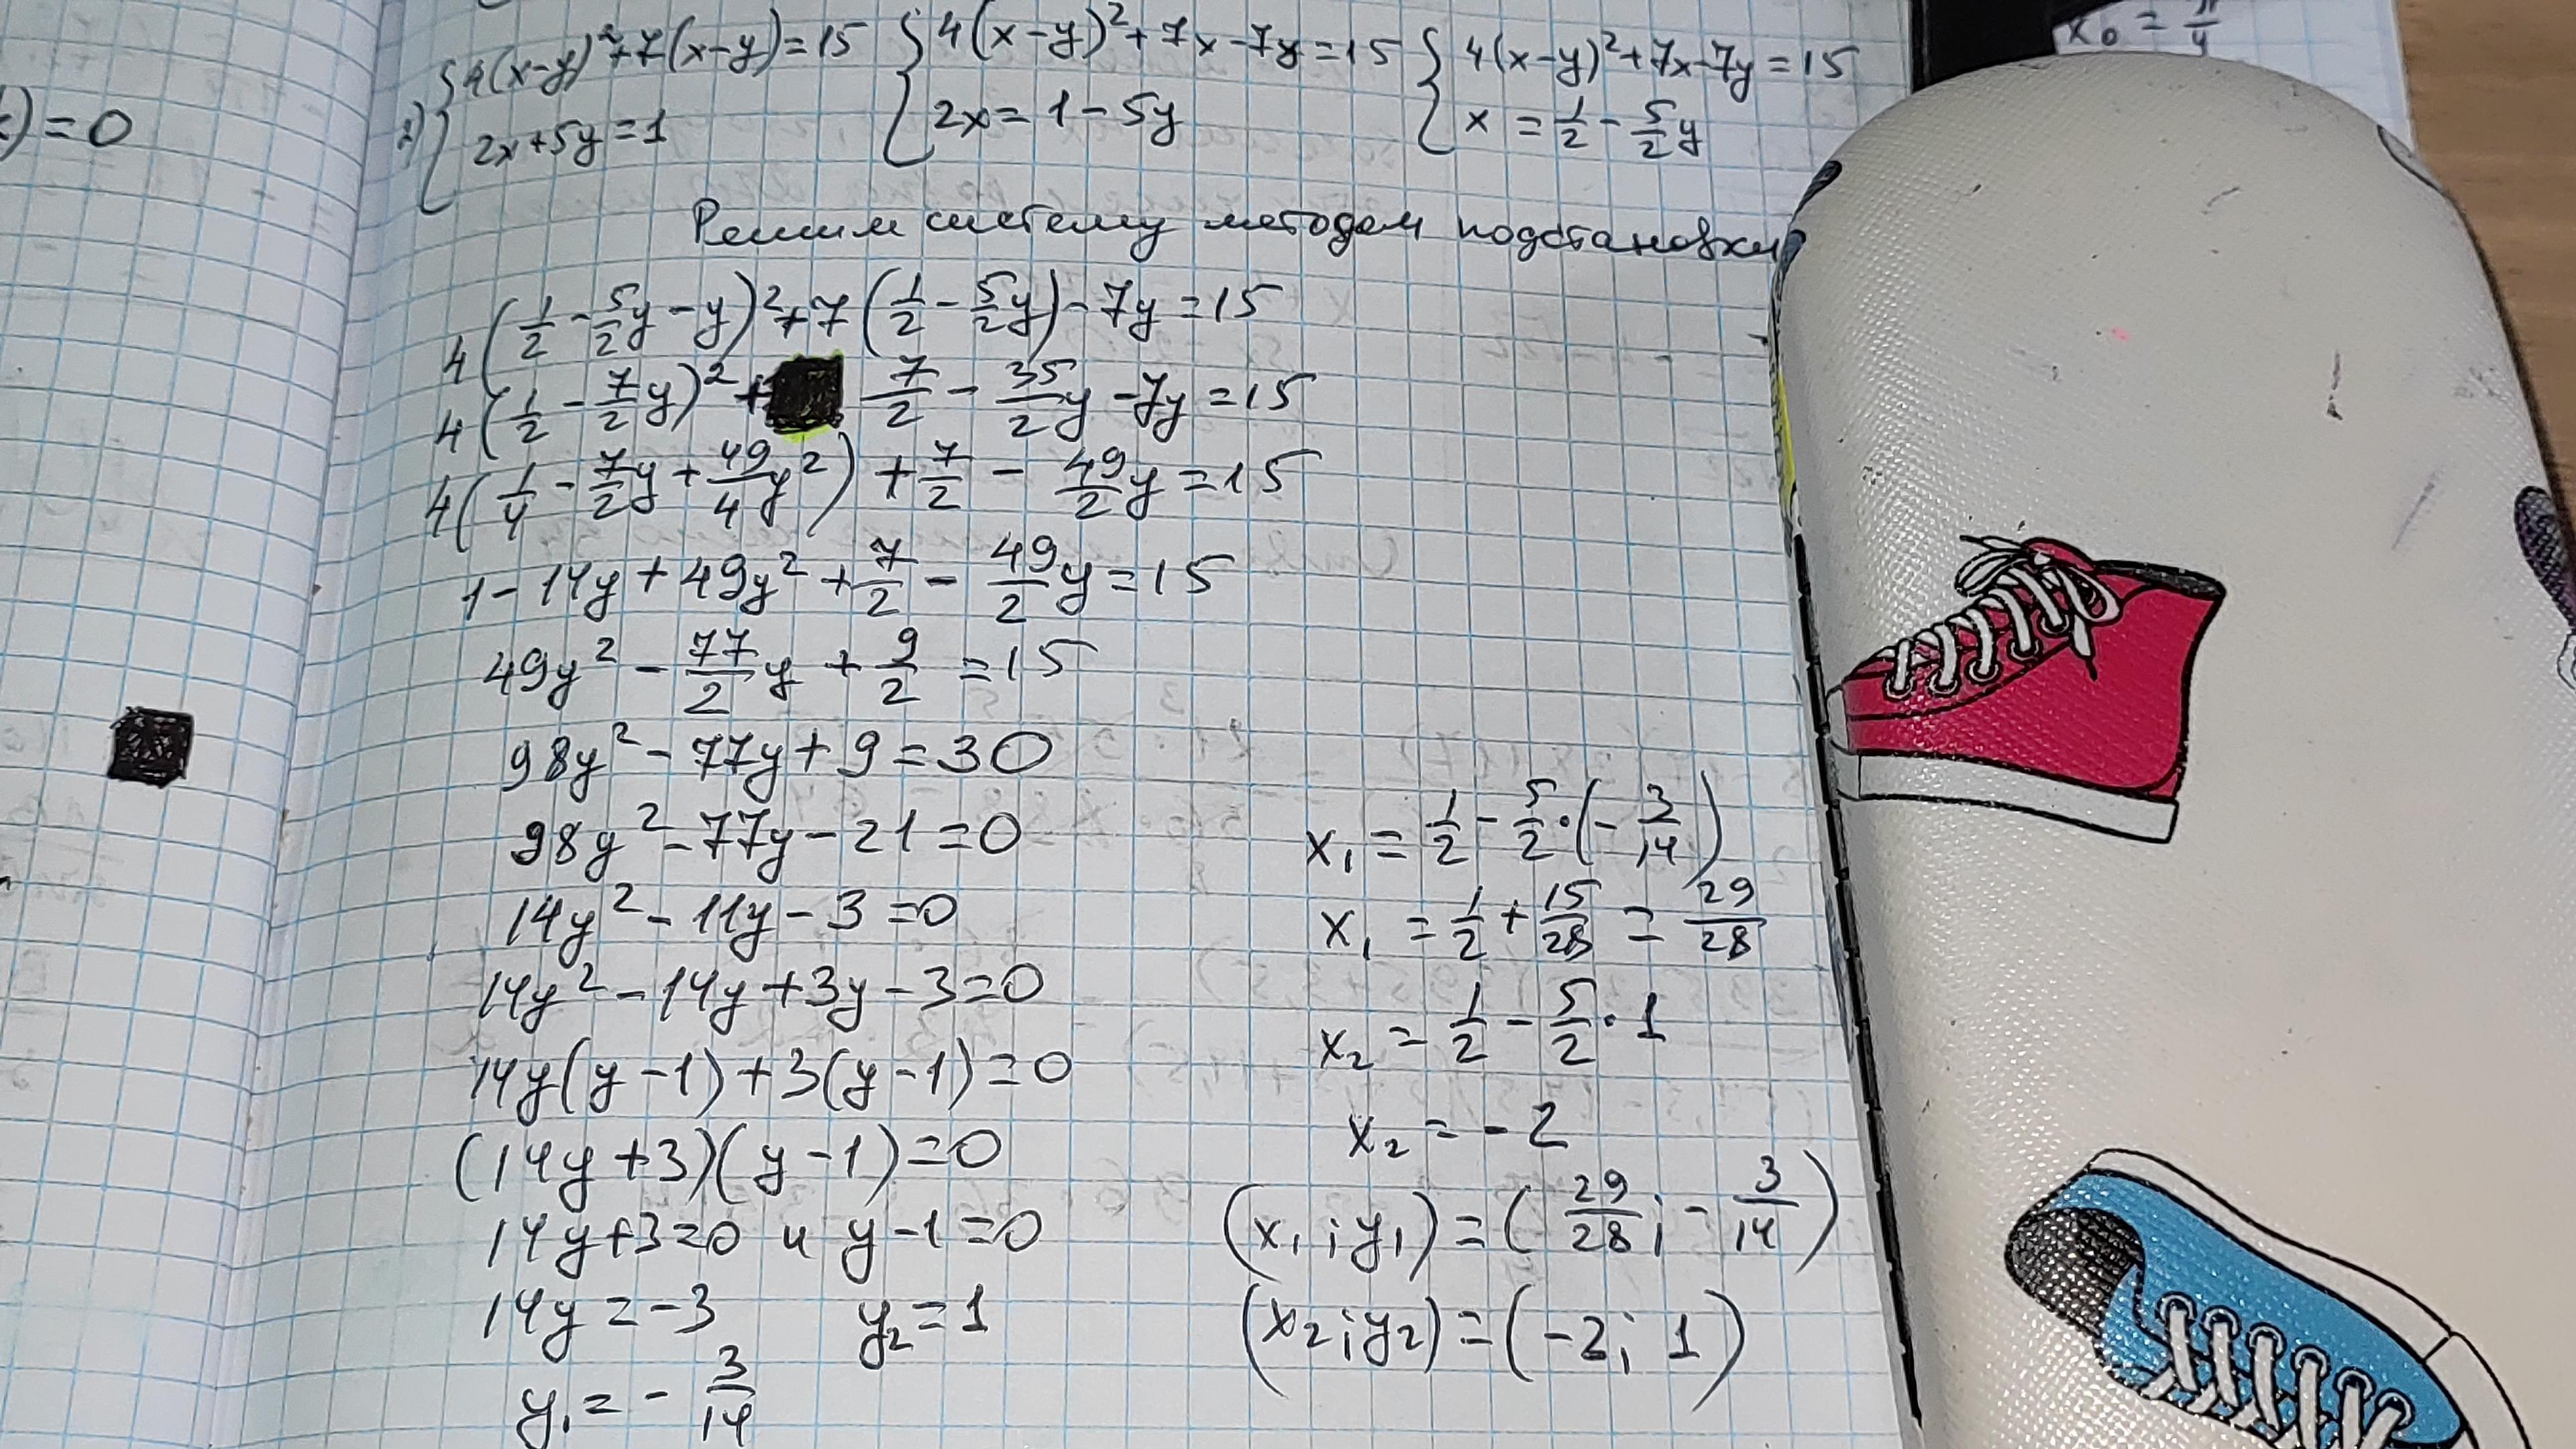 ) = 0
{4(x-y)²+7(x-y)=15 {4(x-y)²+7x-7y=15 {4(x-y)²+7x-7y=15
{2x+5y=1 {2x=1-5y {x=1/2-5/2y
x₀ = π/4
Решим систему методом подстановки
4(1/2-5/2y-y)²+7(1/2-5/2y)-7y=15
4(1/2-7/2y)²+ 7/2-35/2y-7y=15
4(1/4-7/2y+49/4y²)+7/2-49/2y=15
1-14y+49y²+7/2-49/2y=15
49y²-77/2y+9/2=15
98y²-77y+9=30
98y²-77y-21=0
14y²-11y-3=0
14y²-14y+3y-3=0
14y(y-1)+3(y-1)=0
(14y+3)(y-1)=0
14y+3=0 и y-1=0
14y=-3 y₂=1
y₁=-3/14
x₁=1/2-5/2·(-3/14)
x₁=1/2+15/28=29/28
x₂=1/2-5/2·1
x₂=-2
(x₁;y₁)=(29/28;-3/14)
(x₂;y₂)=(-2;1)